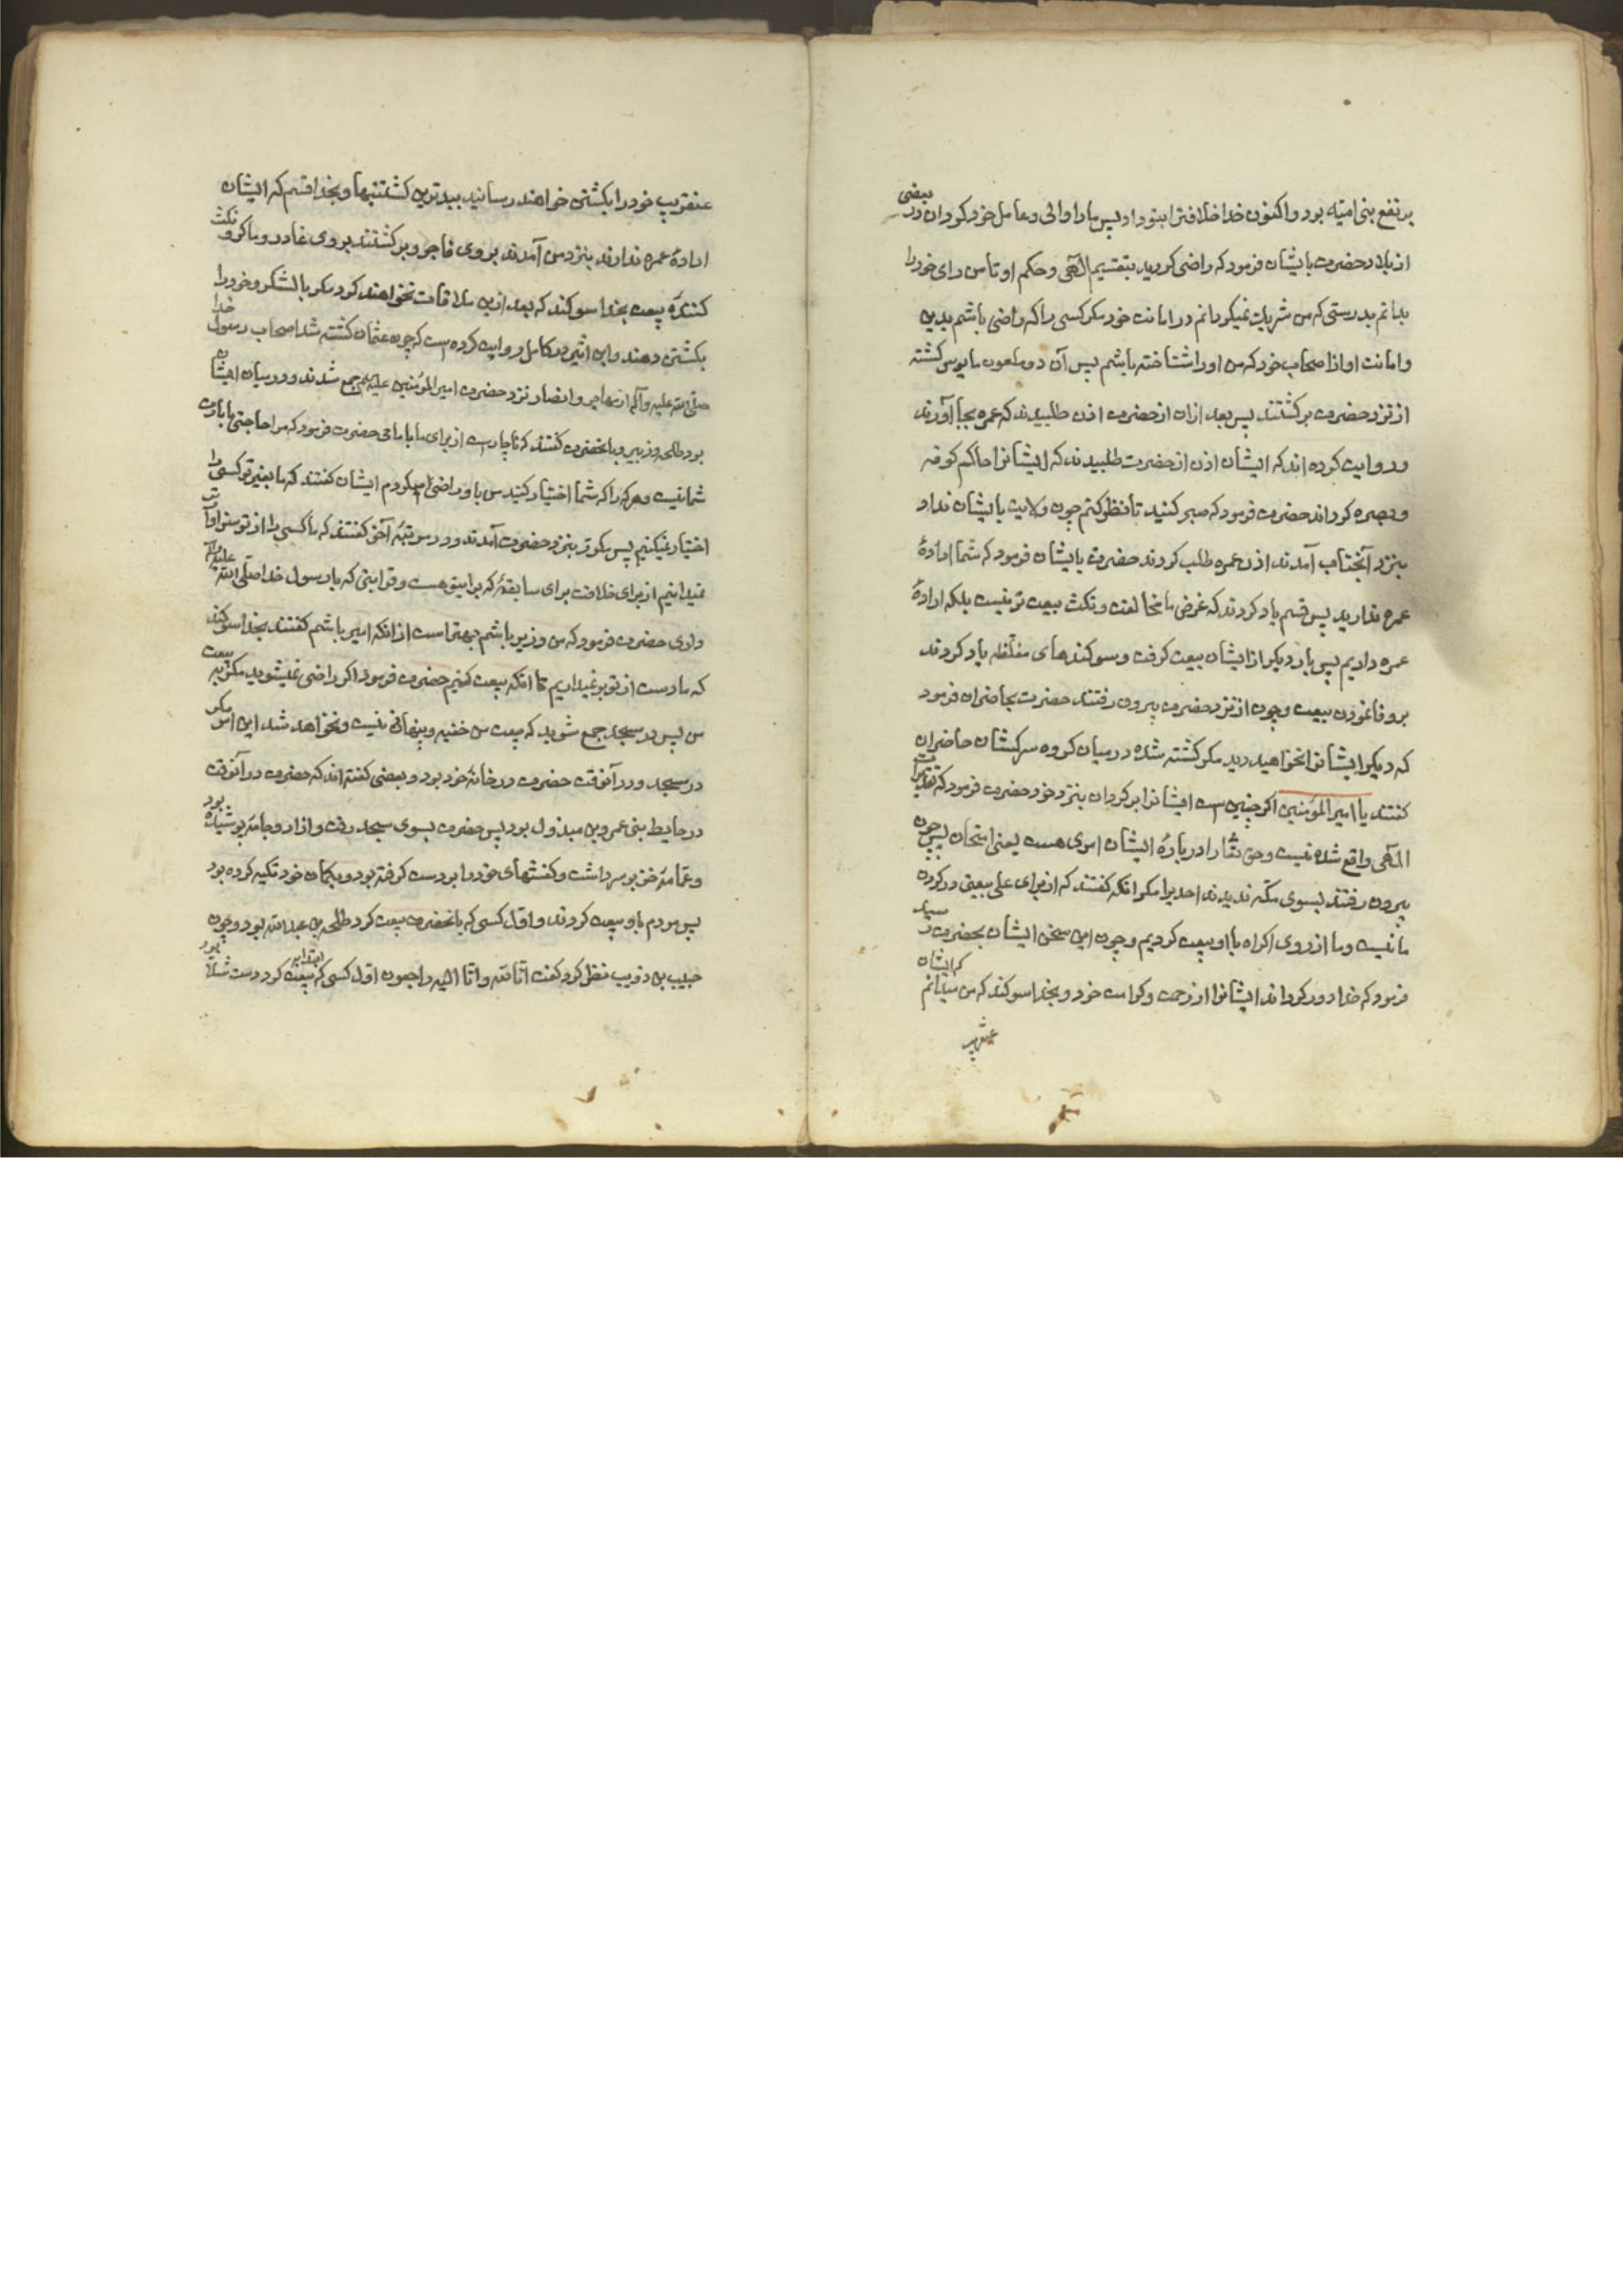 بر نفع بنی امیّه بود و اکنون خدا خلافترا بتو داد پس ما را والی و عامل خود کردان در بعضی
از بلاد حضرت بایشان فرمود که راضی کردید بتقسیم الٓهی و حکم او تا من رای خود را
بدانم بدرستی که من شریک نمیکردانم در امانت خود مکر کسی را که راضی باشم بدین
و امانت او از اصحاب خود که من او را شناخته باشم پس آن دو ملعون مایوس کشته
از نزد حضرت برکشتند پس بعد ازان از حضرت اذن طلبیدند که عمره بجا آورند
و روایت کرده اند که ایشان اذن از حضرت طلبیدند که ایشانرا حاکم کوفه
و بصره کرداند حضرت فرمود که صبر کنید تا نظر کنم چون ولایت بایشان نداد
بنزد آنجناب آمدند اذن عمره طلب کردند حضرت بایشان فرمود که شما ارادهٔ
عمره ندارید پس قسم یاد کردند که غرض ما مخالفت و نکث بیعت تو نیست بلکه ارادهٔ
عمره داریم پس بار دیکر از ایشان بیعت کرفت و سوکندهای مغلّظه یاد کردند
بر وفا نمودن بیعت و چون از نزد حضرت بیرون رفتند حضرت بحاضران فرمود
که دیکر ایشانرا نخواهید دید مکر کشته شده در میان کروه سرکشان حاضران
کفتند یا امیر المؤمنین اکر چنین است ایشانرا برکردان بنزد خود حضرت فرمود که تقدیرات
الٓهی واقع شده نیست و حق تعٓا را در بارهٔ ایشان امری هست یعنی امتحان پس چون
بیرون رفتند بسوی مکّه ندیدند احدیرا مکر آنکه کفتند که از برای علی بیعتی در کردن
ما نیست و ما از روی اکراه با او بیعت کردیم و چون این سخن ایشان بحضرت رسید
فرمود که خدا دور کرداند ایشانرا از رحمت و کرامت خود و بخدا سوکند که من میدانم که ایشان
عنقریب
عنقریب خود را بکشتن خواهند رسانید ببدترین کشتنیها و بخدا قسم که ایشان
ارادهٔ عمره ندارند بنزد من آمدند بروی فاجر و برکشتند بروی غادر و ماکر و نکث
کنندهٔ بیعت بخدا سوکند که بعد ازین ملاقات نخواهند کرد مکر با لشکر و خود را
بکشتن دهند و ابن اثیر در کامل روایت کرده است که چون عثمان کشته شد اصحاب رسول خدا
صلّی الله علیه و آله از مهاجر و انصار نزد حضرت امیر المؤمنین علیه السلم جمع شدند و در میان ایشان
بود طلحه و زبیر و بانحضرت کفتند که ناچار است از برای ما با امامی حضرت فرمود که مرا حاجتی بامارت
شما نیست و هر که را که شما اختیار کنید من باو راضی میکردم ایشان کفتند که ما بغیر تو کسی را
اختیار نمیکنیم پس مکرّر بنزد حضرت آمدند و در مرتبهٔ آخر کفتند که ما کسی را از تو سزاوارتر
نمیدانیم از برای خلافت برای سابقهٔ که برایتو هست و قرابتی که با رسول خدا صلّی الله علیه و آله
داری حضرت فرمود که من وزیر باشم بهتر است از آنکه امیر باشم کفتند بخدا سوکند
که ما دست از تو بر نمیداریم تا آنکه بیعت کنیم حضرت فرمود اکر راضی نمیشوید مکر به بیعت
من پس در مسجد جمع شوید که بیعت من خفیه و پنهانی نیست و نخواهد شد این امر مکر
در مسجد و در آنوقت حضرت در خانهٔ خود بود و بعضی کفته اند که حضرت در آنوقت
در حایط بنی عمرو بن مبذول بود پس حضرت بسوی مسجد رفت و ازار و جامه پوشیده بود
و عمّامهٔ خز بر سر داشت و کفشهای خود را بر دست کرفته بود و بکمان خود تکیه کرده بود
پس مردم باو بیعت کردند و اوّل کسی که بانحضرت بیعت کرد طلحه بن عبد الله بود و چون
حبیب بن ذویب نظر کرد کفت انّا لله و انّا الیه راجعون اوّل کسی که ابتدا به بیعت کرد دست شلّا بود